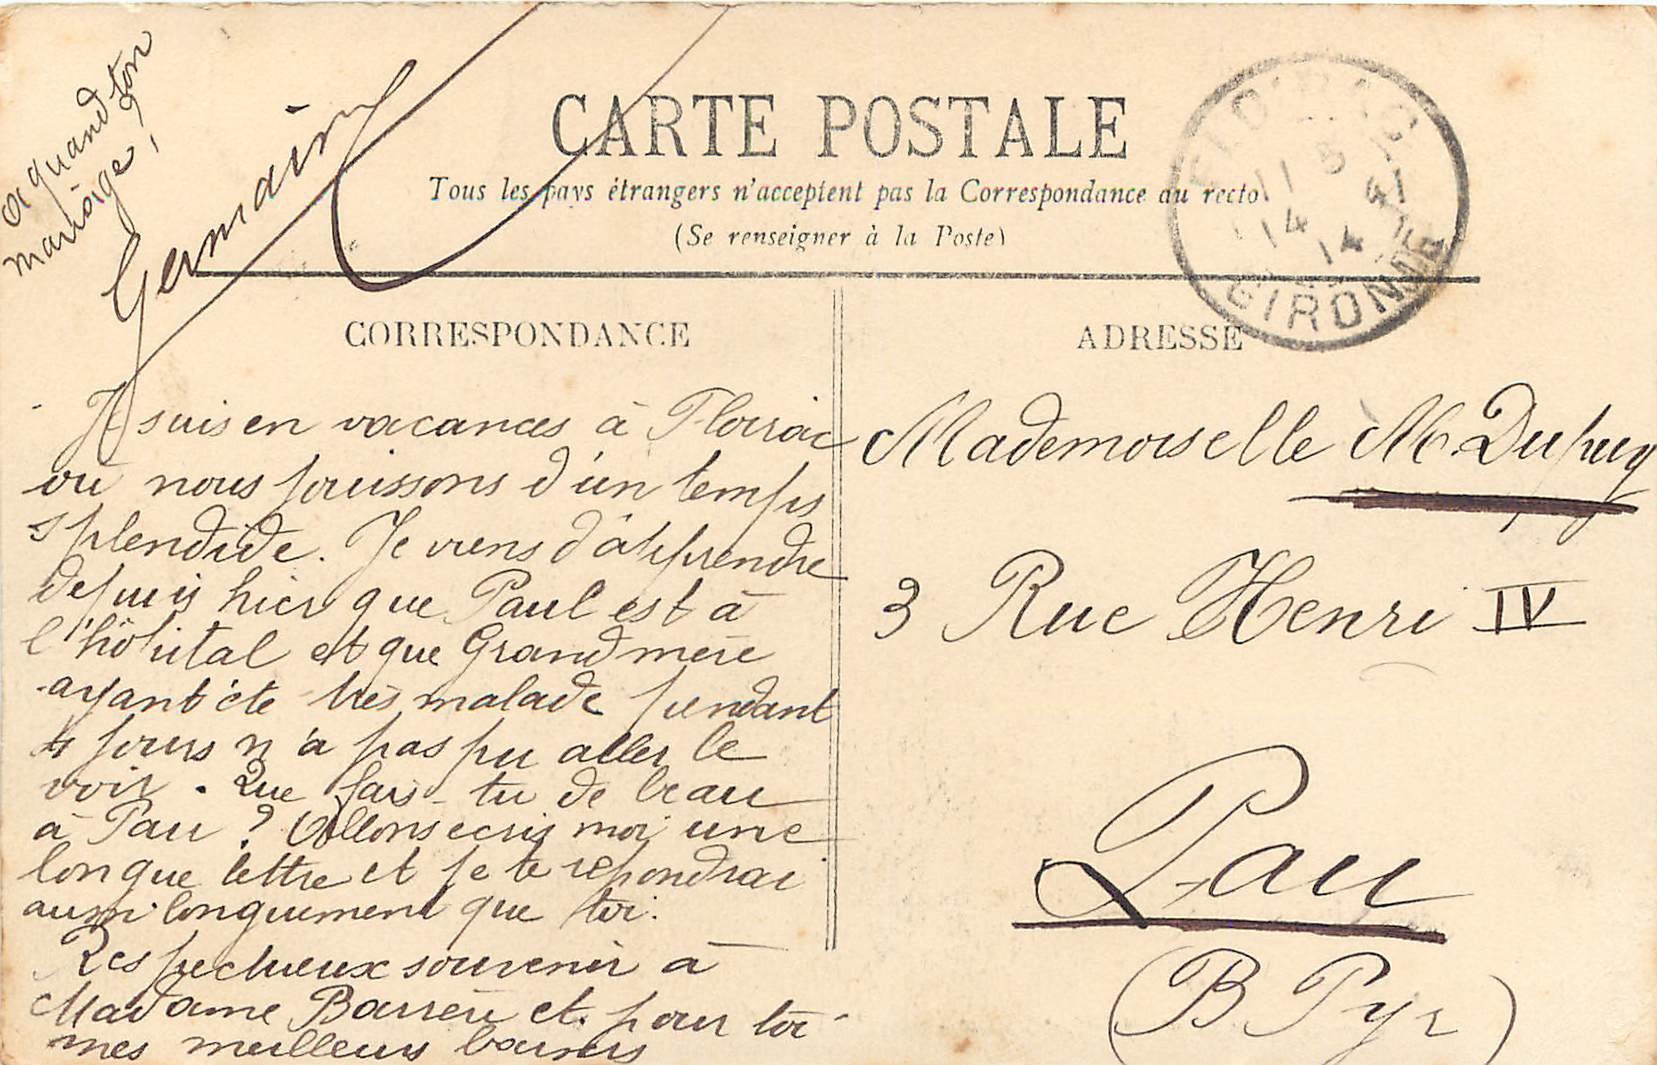 à quand ton
mariage !?
Germaine
CARTE POSTALE
Tous les pays étrangers n'acceptent pas la Correspondance au recto
(Se renseigner à la Poste)
FLOIRAC
11 5
14 4
14
GIRONDE
CORRESPONDANCE
Je suis en vacances à Floirac
où nous jouissons d'un temps
splendide. Je viens d'apprendre
depuis hier que Paul est à
l'hôpital et que Grand mère
ayant été très malade pendant
4 jours n'a pas pu aller le
voir. Que fais-tu de beau
à Pau ? Allons ecris moi une
longue lettre et je te repondrai
aussi longuement que toi.
Respectueux souvenir à
Madame Barrère et pour toi
mes meilleurs baisers
ADRESSE
Mademoiselle M. Dupuy
3 Rue Henri IV
Pau
(B Pyr)